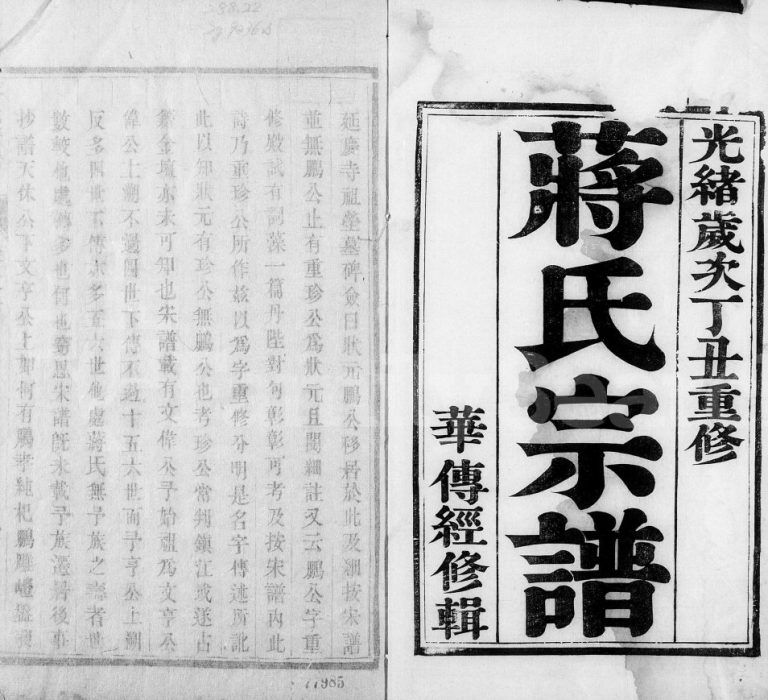 光緒歲次丁丑重修
蔣氏宗譜
華傳經修輯
延慶寺祖塋墓碑僉曰狀元鵬公移居於此及細按宋譜
並無鵬公止有重珍公爲狀元且閱細註又云鵬公字重
修殿試有詞藻一篇丹陛對句彰彰可考及按宋譜內此
詩乃重珍公所作茲以爲字重修分明是名字傳述所訛
此以知狀元有珍公無鵬公也考珍公常州鎮江或遂占
籍金壇亦未可知也宋譜載有文偉公予始祖爲文亨公
偉公上溯不過四世下傳不過十五六世而予亨公上溯
反多四世下傳亦多五六世他處蔣氏無予族之
數較他處
抄譜天休公文亨公上如何有
77985